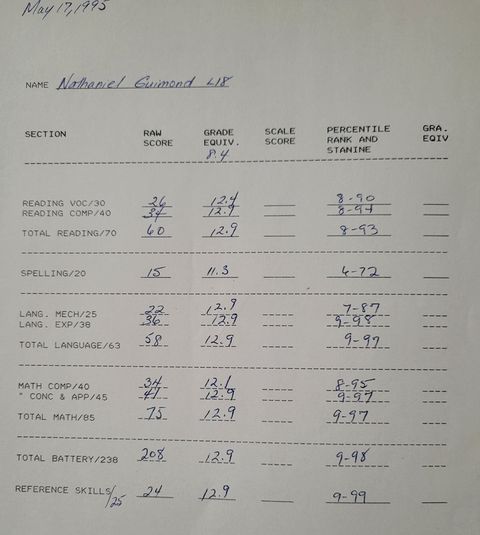 May 17, 1995
NAME Nathaniel Guimond L18
SECTION RAW SCORE GRADE EQUIV. 8.4 SCALE SCORE PERCENTILE RANK AND STANINE GRA. EQIV
READING VOC/30 26 12.4 8-90
READING COMP/40 34 12.9 8-94
TOTAL READING/70 60 12.9 8-93
SPELLING/20 15 11.3 6-72
LANG. MECH/25 22 12.9 7-87
LANG. EXP/38 36 12.9 9-98
TOTAL LANGUAGE/63 58 12.9 9-97
MATH COMP/40 34 12.1 8-95
" CONC & APP/45 41 12.9 9-97
TOTAL MATH/85 75 12.9 9-97
TOTAL BATTERY/238 208 12.9 9-98
REFERENCE SKILLS/25 24 12.9 9-99